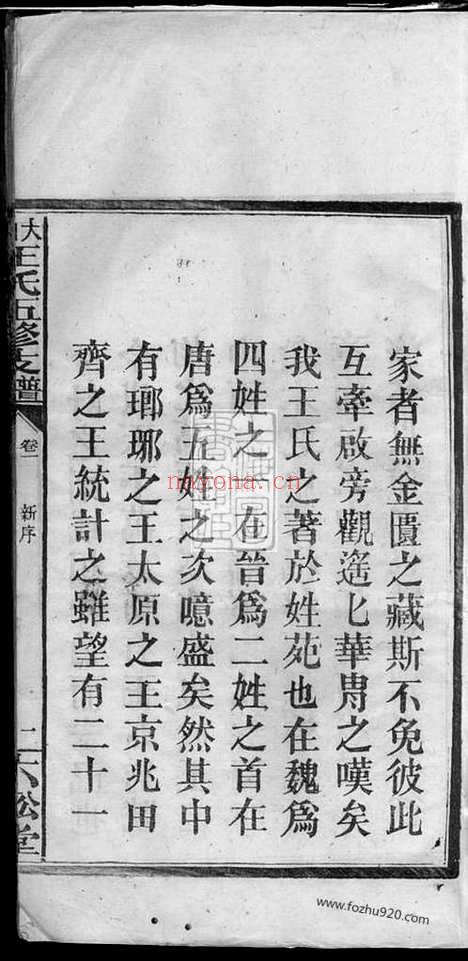 家者無金匱之藏斯不免彼此
互牽啟旁觀遙匕華胄之嘆矣
我王氏之著於姓苑也在魏爲
四姓之一在晉爲二姓之首在
唐爲五姓之次噫盛矣然其中
有瑯琊之王太原之王京兆田
齊之王統計之雖望有二十一
王氏五修支譜
卷一
新序
二
松堂
nayona.cn
www.fozhu920.com